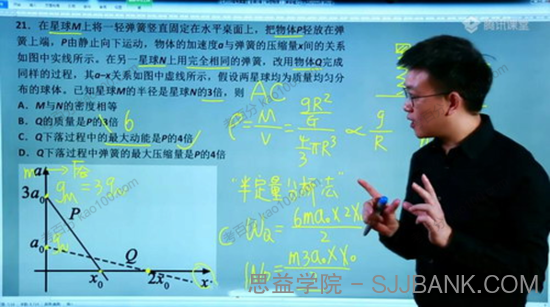 腾讯课堂
21. 在星球M上将一轻弹簧竖直固定在水平桌面上，把物体P轻放在弹
簧上端，P由静止向下运动，物体的加速度a与弹簧的压缩量x间的关系
如图中实线所示。在另一星球N上用完全相同的弹簧，改用物体Q完成
同样的过程，其a-x关系如图中虚线所示，假设两星球均为质量均匀分
布的球体。已知星球M的半径是星球N的3倍，则
AC
A. M与N的密度相等
B. Q的质量是P的3倍
6
C. Q下落过程中的最大动能是P的4倍
D. Q下落过程中弹簧的最大压缩量是P的4倍
ρ = M/V = gR²/G / 4/3 πR³ ∝ g/R
"半定量分析法"
a
3a₀
gM = 3gN
P
a₀
Q
O
x₀
2x₀
x
C
WQ = 6ma₀×2x₀ / 2
m3a₀×x₀
思益学院 - SJJBANK.COM